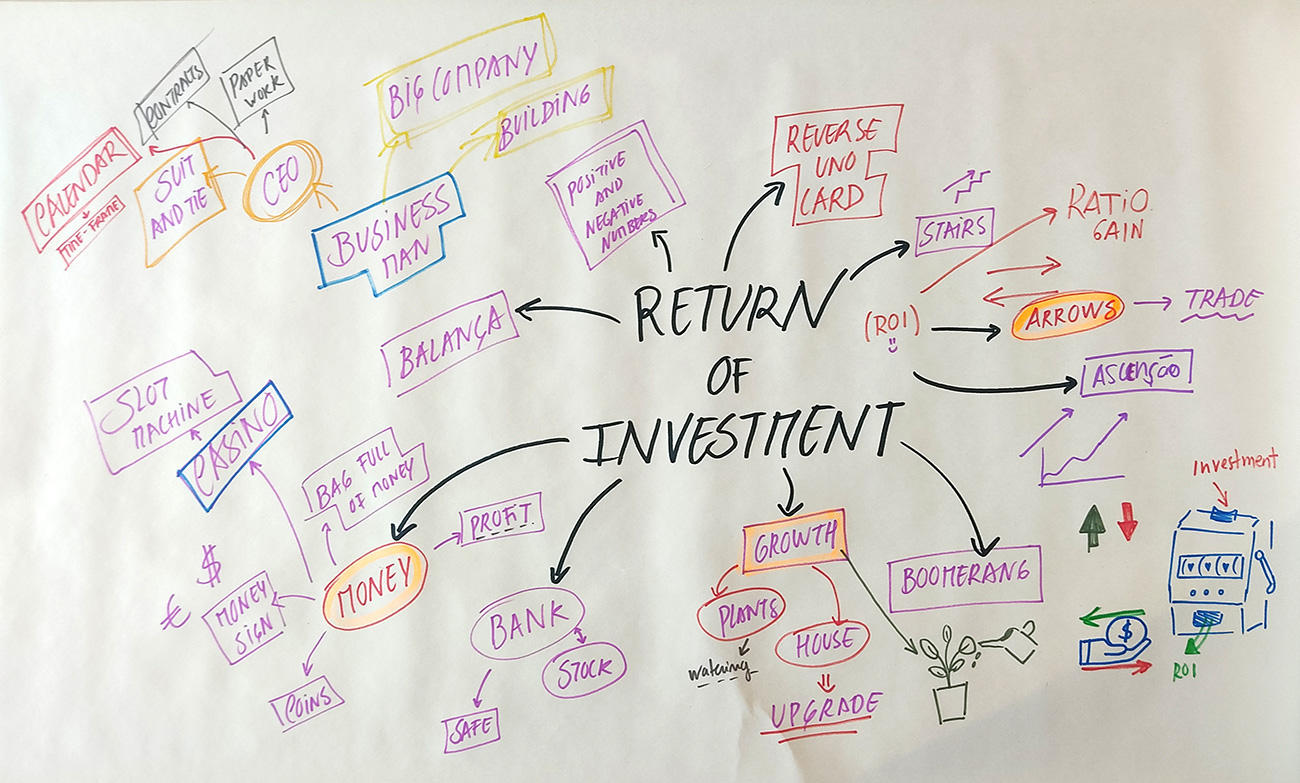 BIG COMPANY
BUILDING
PAPER
WORK
CONTRATS
CALENDAR
TIME-FRAME
SUIT
AND TIE
CEO
BUSINESS
MAN
POSITIVE
AND
NEGATIVE
NUMBERS
REVERSE
UNO
CARD
STAIRS
RATIO
GAIN
RETURN
OF
INVESTMENT
(ROI)
ARROWS
TRADE
ASCENÇÃO
BALANÇA
SLOT
MACHINE
CASINO
BAG FULL
OF MONEY
PROFIT
MONEY
$
€
MONEY
SIGN
COINS
BANK
STOCK
SAFE
GROWTH
PLANTS
watering
HOUSE
UPGRADE
BOOMERANG
Investment
$
ROI